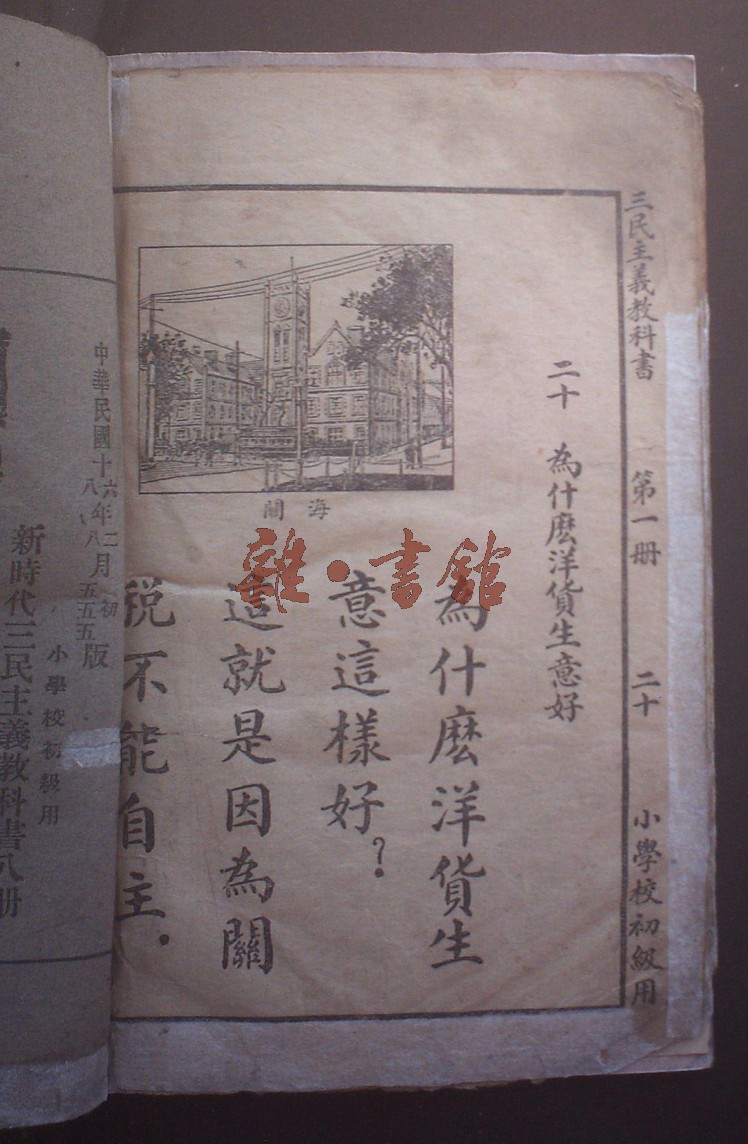 三民主義教科書 第一册 二十 小學校初級用
二十 為什麽洋貨生意好
海關
為什麽洋貨生
意這樣好？
這就是因為關
税不能自主．
雜·書館
中華民國十六年二月初版
八八五五五
小學校初級用
新時代三民主義教科書八册